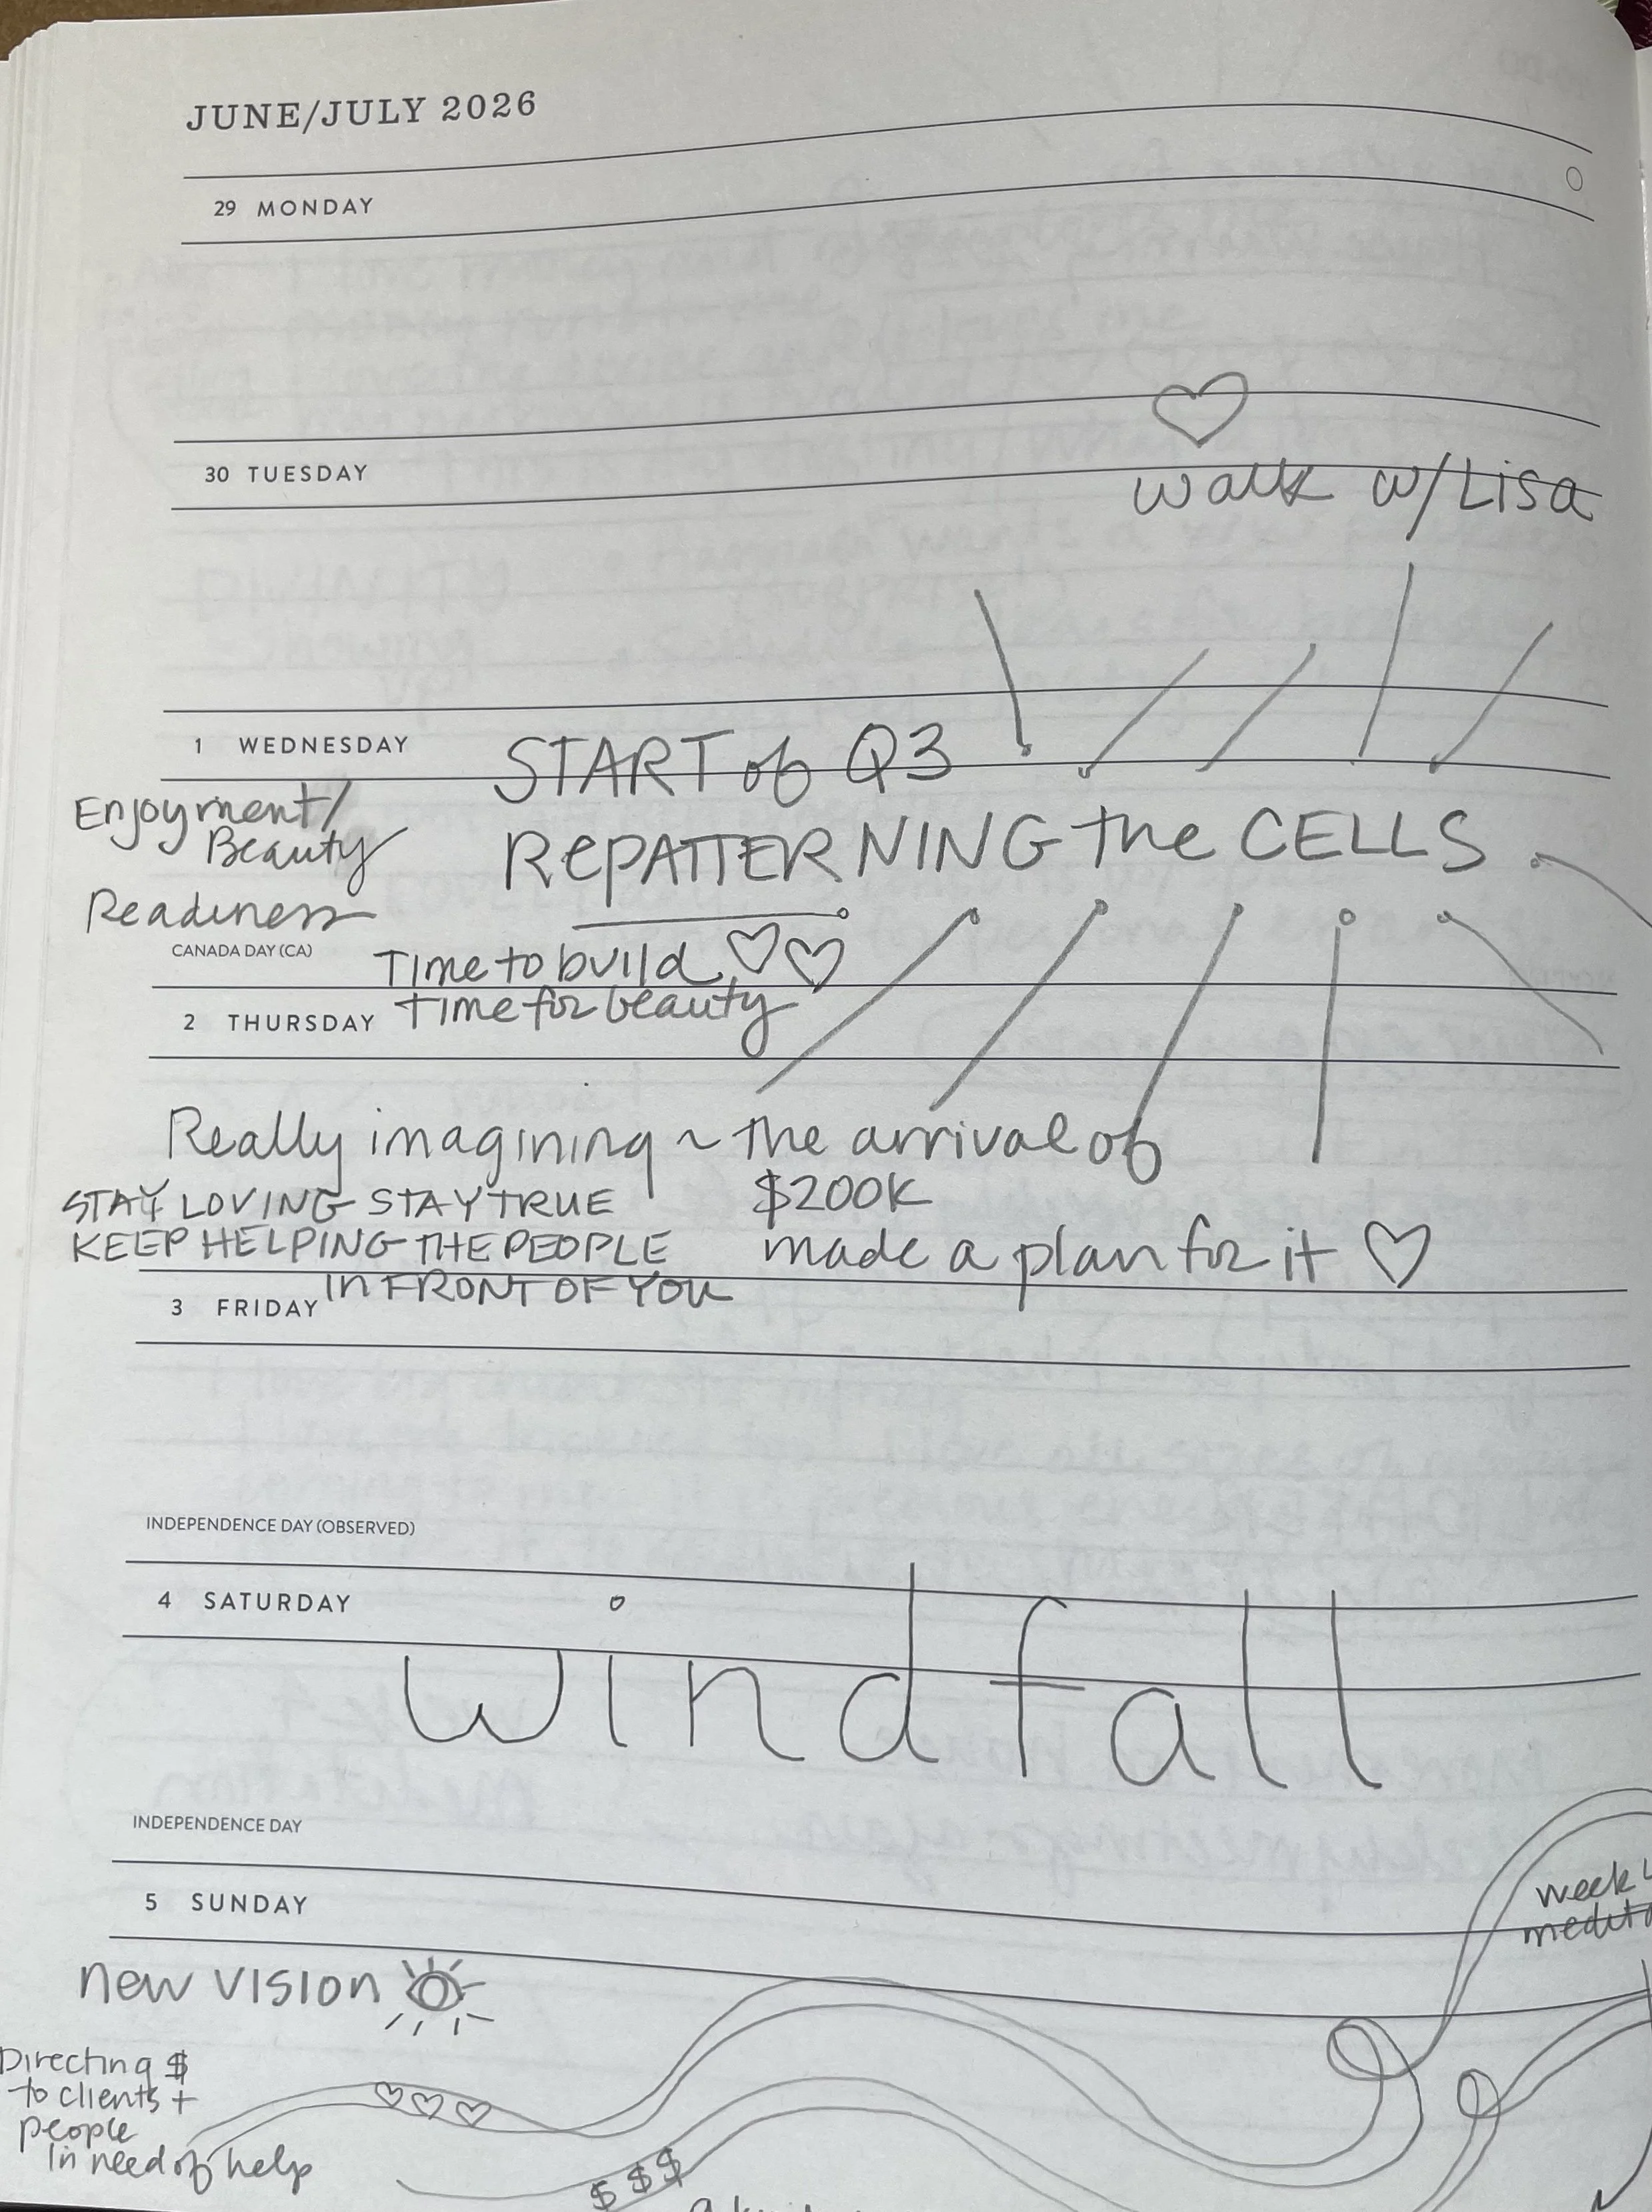 JUNE/JULY 2026
29 MONDAY
30 TUESDAY
walk w/Lisa
1 WEDNESDAY
START of Q3
Enjoyment/
Beauty
REPATTERNING the CELLS
Readiness
CANADA DAY (CA)
Time to build
2 THURSDAY
time for beauty
Really imagining ~ the arrival of
$200K
STAY LOVING STAY TRUE
KEEP HELPING THE PEOPLE
IN FRONT OF YOU
made a plan for it
3 FRIDAY
INDEPENDENCE DAY (OBSERVED)
4 SATURDAY
windfall
INDEPENDENCE DAY
5 SUNDAY
week
new vision
Directing $
to clients +
people
in need of help
$ $ $